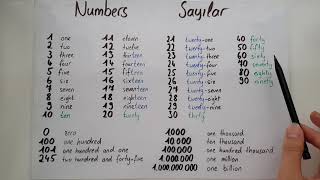 Numbers Sayılar
1 one 11 eleven 21 twenty-one 40 forty
2 two 12 twelve 22 twenty-two 50 fifty
3 three 13 thirteen 23 twenty-three 60 sixty
4 four 14 fourteen 24 twenty-four 70 seventy
5 five 15 fifteen 25 twenty-five 80 eighty
6 six 16 sixteen 26 twenty-six 90 ninety
7 seven 17 seventeen 27 twenty-seven
8 eight 18 eighteen 28 twenty-eight
9 nine 19 nineteen 29 twenty-nine
10 ten 20 twenty 30 thirty
0 zero 1000 one thousand
100 one hundred 10.000 ten thousand
101 one hundred and one 100.000 one hundred thousand
245 two hundred and forty-five 1.000.000 one million
1.000.000.000 one billion